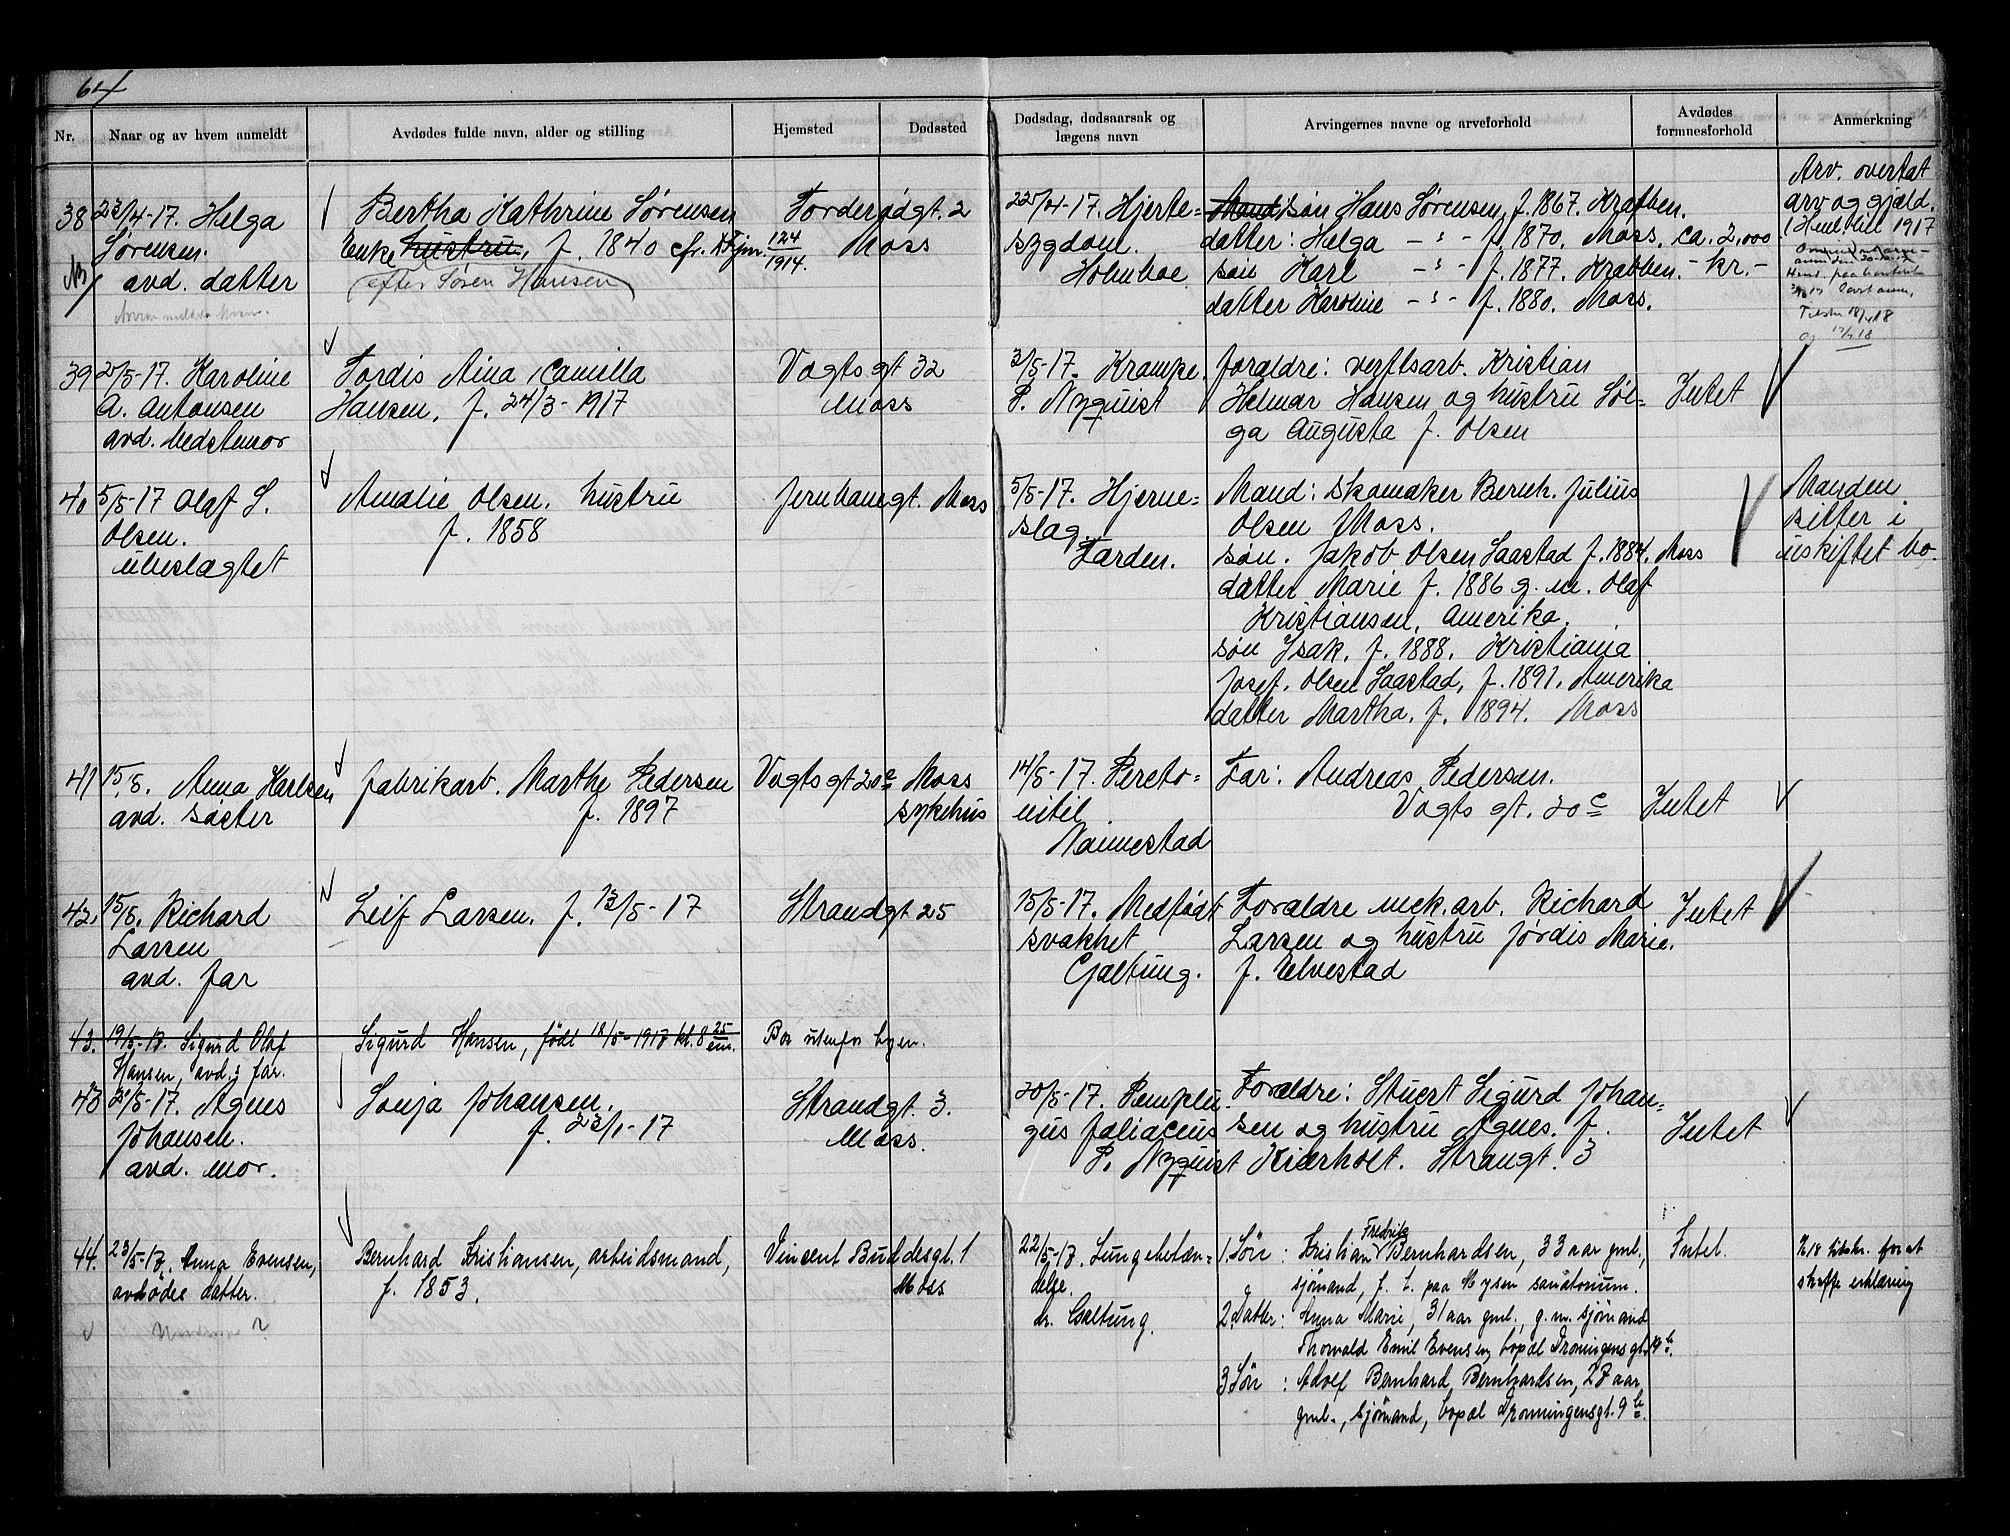 64
Nr.
Naar og av hvem anmeldt
Avdødes fulde navn, alder og stilling
Hjemsted
Dødssted
Dødsdag, dødsaarsak og
lægens navn
Arvingernes navne og arveforhold
Avdødes
formnesforhold
Anmerkning
38
23/4-17. Helga
Sørensen.
avd. datter
Bertha Kathrine Sørensen
Enke hustru, f. 1840 cfr.
124
1914.
(efter Søren Hansen)
Fordergdgt. 2
Moss
22/4-17. Hjerte=
sygdom.
Holmboe
Mand søn Hans Sørensen, f. 1867. Krabben.
datter: Helga -"- f. 1870. Moss.
søn Karl -"- f. 1877. Krabben.
datter Karoline -"- f. 1880. Moss.
ca. 2,000
- kr. -
Arv. overtat
arv og gjæld.
1917
18/4 18
39
2/5-17. Karoline
A. Antonsen
avd. bedstemor
Tordis Aina Camilla
Hansen, f. 24/3-1917
Vogts gt 32
Moss
2/5-17. Krampe.
P. Nyquist
foraldre: verftsarb. Kristian
Helmar Hansen og hustru Sol=
ga Augusta f. Olsen
Intet
40
5/5-17 Olaf S.
Olsen.
ubeslagtet
Amalie Olsen. hustru
f. 1858
Jernbanegt. Moss
5/5-17. Hjerne=
slag.
Farden.
Mand: skomaker Bernh. Julius
Olsen Moss.
søn. Jakob Olsen Saastad f. 1884. Moss
datter Marie f. 1886 g. m. Olaf
Kristiansen, Amerika.
søn Isak. f. 1888. Kristiania
Josef. Olsen Saastad, f. 1891. Amerika
datter Martha. f. 1894. Moss
Manden
sitter i
uskiftet bo.
41
15/5. Anna Karlsen
avd. søster
fabrikarb. Marthe Pedersen
f. 1897
Vogts gt 20c
Moss
sykehus
14/5-17. Pereto=
nitil
Nannestad
Far: Andreas Pedersen.
Vogts gt. 20c
Intet
42.
15/5. Richard
Larsen
avd. far
Leif Larsen. f. 13/5-17
Strandgt 25
15/5-17. Medfødt
svakhet
Galtung.
Foraldre mek. arb. Richard
Larsen og hustru Jørdis Marie.
f. Elvestad
Intet
43.
19/5-17. Sigurd Olaf
Hansen, avd.s far.
Sigurd Hansen, født 18/5-1917 kl. 8 25 em.
Bor utenfor byen.
43
21/5-17. Agnes
Johansen.
avd. mor.
Sonja Johansen.
f. 23/1-17
Strandgt. 3.
Moss.
20/5-17. Pemplu
gus foliaceus
P. Nyquist
Foraldre: Stuert Sigurd Johan=
sen og hustru Agnes. f.
Kiærholt. Strangt. 3
Intet
44.
23/5-17, Anna Evensen,
avdødes datter.
Bernhard Kristiansen, arbeidsmand,
f. 1853.
Vincent Buddesgt. 1
Moss
22/5-17. Lungebetæn-
delse.
dr. Galtung.
1. Søn : Kristian Fredrik Bernhardsen, 33 aar gml.,
sjømand, f. t. paa Mysen sanatorium.
2. Datter: Anna Marie, 31 aar gml., g. m. sjømand
Thorvald Emil Evensen, bopæl Dronningensgt. 9 b.
3 Søn : Adolf Bernhard Bernhardsen, 28 aar
gml., sjømand, bopæl Dronningensgt. 9 b.
Intet.
for at
skaffe erklæring